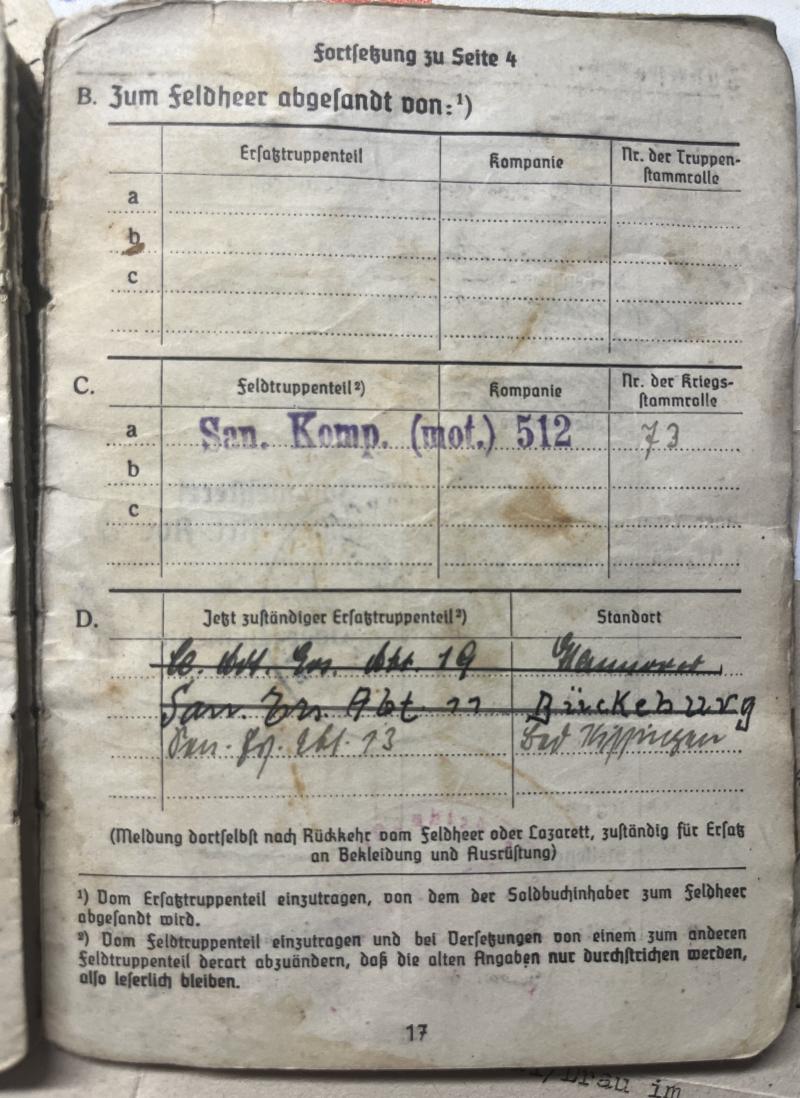 Fortsetzung zu Seite 4
B. Zum Feldheer abgesandt von:¹)
Ersatztruppenteil Kompanie Nr. der Truppen-
stammrolle
a
b
c
C. Feldtruppenteil²) Kompanie Nr. der Kriegs-
stammrolle
a San. Komp. (mot.) 512 73
b
c
D. Jetzt zuständiger Ersatztruppenteil²) Standort
Abt. 19 Hannover
San. Ers. Abt. 11 Bückeburg
San. Ers. Abt. 13 Bad Kissingen
(Meldung dortselbst nach Rückkehr vom Feldheer oder Lazarett, zuständig für Ersatz
an Bekleidung und Ausrüstung)
¹) Vom Ersatztruppenteil einzutragen, von dem der Soldbuchinhaber zum Feldheer
abgesandt wird.
²) Vom Feldtruppenteil einzutragen und bei Versetzungen von einem zum anderen
Feldtruppenteil derart abzuändern, daß die alten Angaben nur durchstrichen werden,
also leserlich bleiben.
17
im